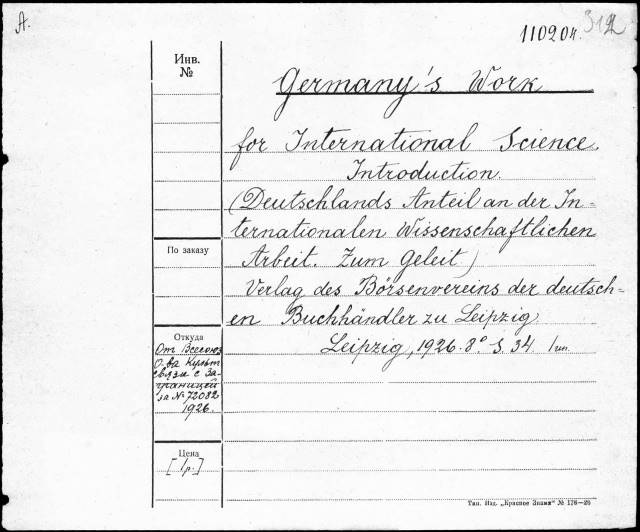 A.
110204. 312
Инв.
№
Germany's Work
for International Science.
Introduction.
(Deutschlands Anteil an der In-
ternationalen Wissenschaftlichen
Arbeit. Zum Geleit)
Verlag des Börsenvereins der deutsch-
en Buchhändler zu Leipzig
Leipzig, 1926. 8°. S. 34.
По заказу
Откуда
От Всесоюз
О-ва Культ
связи с За-
границей
за № 72082
1926.
Цена
[1 р.]
Тип. Изд. „Красное Знамя" № 176—26